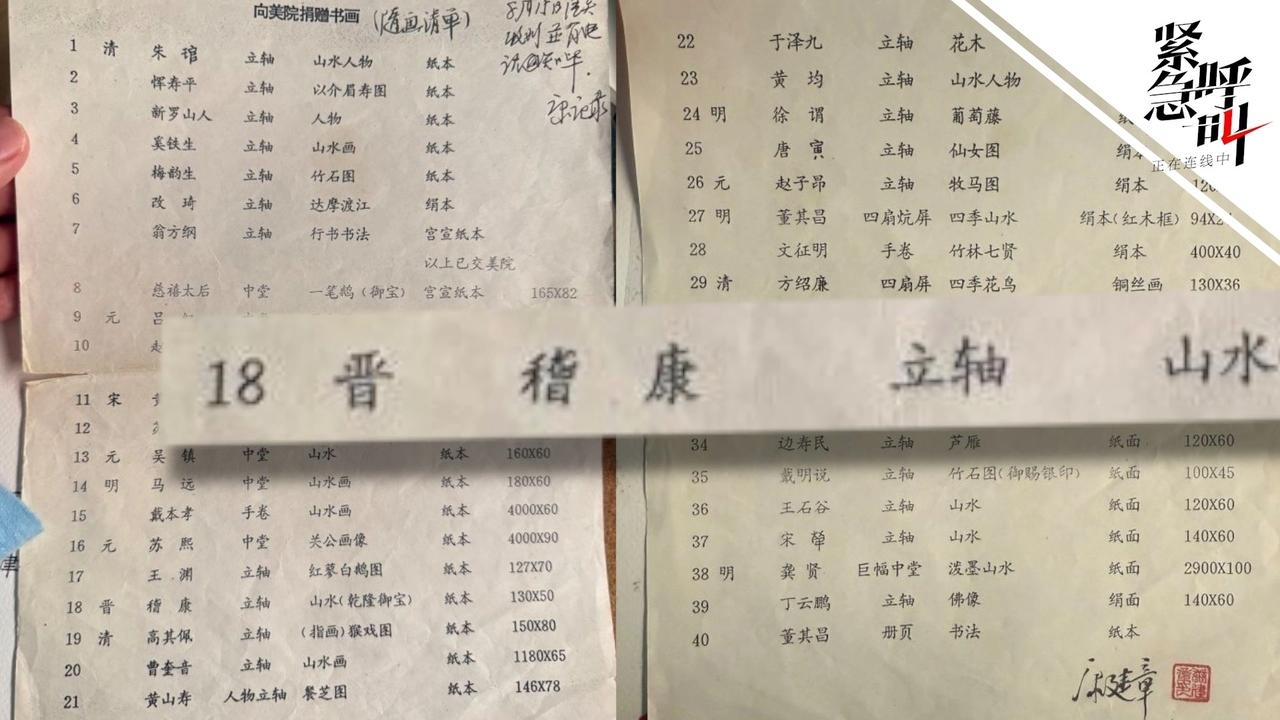 向美院捐赠书画 (随画清单)
1 清 朱琯 立轴 山水人物 纸本
2 恽寿平 立轴 以介眉寿图 纸本
3 新罗山人 立轴 人物 纸本
4 奚铁生 立轴 山水画 纸本
5 梅韵生 立轴 竹石图 纸本
6 改琦 立轴 达摩渡江 绢本
7 翁方纲 立轴 行书书法 宫宣纸本
以上已交美院
8 慈禧太后 中堂 一笔鹅(御宝) 宫宣纸本 165X82
9 元 吕
10
11 宋
12
13 元 吴镇 中堂 山水 纸本 160X60
14 明 马远 中堂 山水画 纸本 180X60
15 戴本孝 手卷 山水画 纸本 4000X60
16 元 苏熙 中堂 关公画像 纸本 4000X90
17 王渊 立轴 红蓼白鹅图 纸本 127X70
18 晋 稽康 立轴 山水(乾隆御宝) 纸本 130X50
19 清 高其佩 立轴 (指画)猴戏图 纸本 150X80
20 曹奎音 立轴 山水画 纸本 1180X65
21 黄山寿 人物立轴 餐芝图 纸本 146X78
22 于泽九 立轴 花木
23 黄均 立轴 山水人物
24 明 徐谓 立轴 葡萄藤
25 唐寅 立轴 仙女图 绢本
26 元 赵子昂 立轴 牧马图 绢本
27 明 董其昌 四扇炕屏 四季山水 绢本(红木框)
28 文征明 手卷 竹林七贤 绢本 400X40
29 清 方绍廉 四扇屏 四季花鸟 铜丝画 130X36
18 晋 稽康 立轴 山水
34 边寿民 立轴 芦雁 纸面 120X60
35 戴明说 立轴 竹石图(御赐银印) 纸面 100X45
36 王石谷 立轴 山水 纸面 120X60
37 宋荦 立轴 山水 纸面 140X60
38 明 龚贤 巨幅中堂 泼墨山水 纸面 2900X100
39 丁云鹏 立轴 佛像 绢面 140X60
40 董其昌 册页 书法 纸本
紧急呼叫
正在连线中